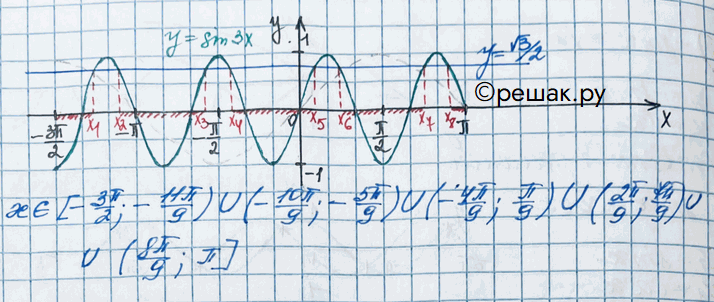 y = sin3x
y
1
y = √3/2
©решак.ру
-3π/2 x₁ x₂ -π x₃ -π/2 x₄ 0 x₅ x₆ π/2 x₇ x₈ π x
-1
x ∈ [-3π/2; -11π/9) U (-10π/9; -5π/9) U (-4π/9; π/9) U (2π/9; 7π/9) U
U (8π/9; π]